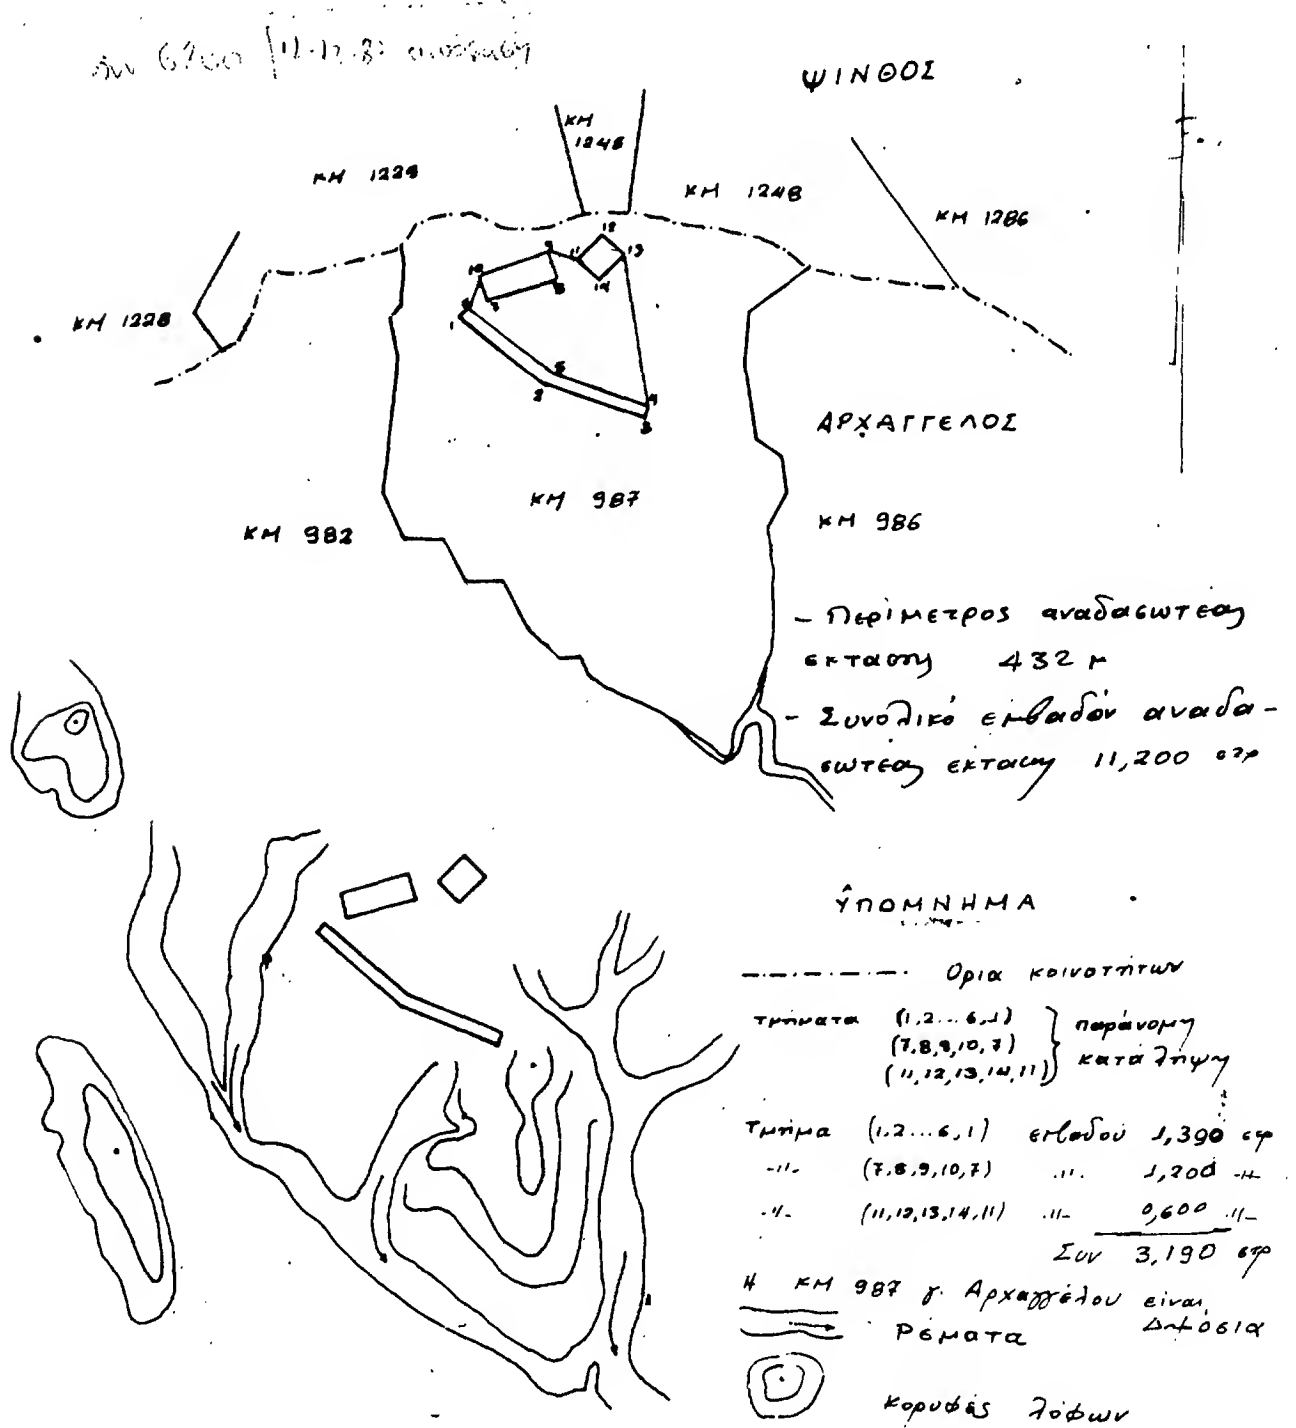 ΨΙΝΘΟΣ
ΚΜ 1248
ΚΜ 1229
ΚΜ 1248
ΚΜ 1286
ΚΜ 1228
12
9
11
13
10
8
14
7
6
1
5
2
4
3
ΑΡΧΑΓΓΕΛΟΣ
ΚΜ 987
ΚΜ 982
ΚΜ 986
- Περίμετρος αναδασωτέας
εκτασης 432 μ
- Συνολικό εμβαδόν αναδα-
σωτέας εκτασης 11,200 στρ
ΥΠΟΜΝΗΜΑ
Ορια κοινοτήτων
τμήματα (1,2...6,1)
(7,8,9,10,7)
(11,12,13,14,11)
παράνομη
κατάληψη
Τμήμα (1,2...6,1) εμβαδού 1,390 στρ
-"- (7,8,9,10,7) -"- 1,200 -"-
-"- (11,12,13,14,11) -"- 0,600 -"-
Συν 3,190 στρ
Η ΚΜ 987 γ. Αρχαγγέλου είναι
Δημόσια
Ρέματα
κορυφές λόφων